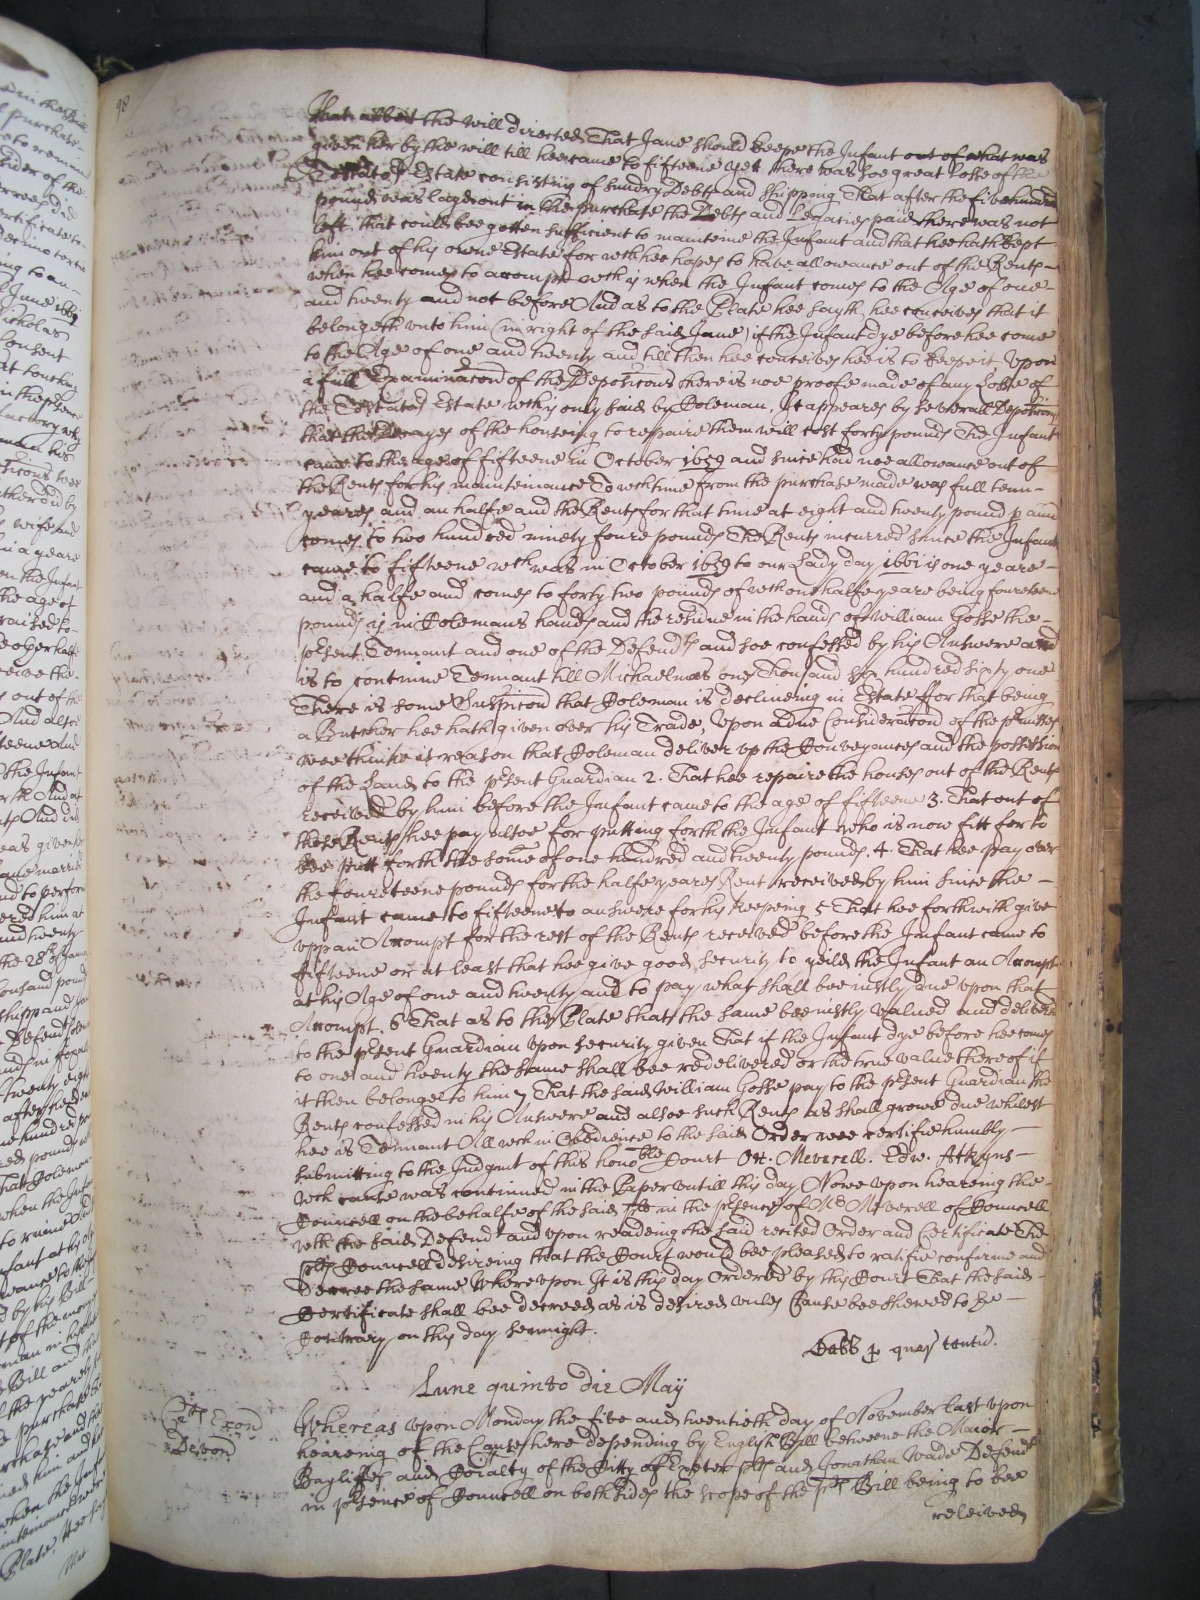 98
That albeit the will directed That Jane should keepe the Infant out of what was
given her by the will till hee came to fifteene yet there was soe great losse of the
Testators Estate consisting of sundry Debts and shipping That after the five hundred
pounds was layd out in the purchase the Debts and Legacies paid there was not
left that could bee gotten sufficient to mainteine the Infant and that hee hath kept
him out of his owne Estate for wch hee hopes to have allowance out of the Rents
when hee comes to accompt wch is when the Infant comes to the Age of one
and twenty and not before And as to the Plate hee sayth hee conceives that it
belongeth unto him (in right of the said Jane) if the Infant dye before hee come
to the Age of one and twenty and till then hee conceives hee is to keepe it, Upon
a full Examinacon of the Deposicons there is noe proofe made of any Losse of
the Testators Estate wch is only said by Coleman, It appeares by severall Deposicons
that the decayes of the houseing to repaire them will cost forty pounds The Infant
came to the age of fifteene in October 1659 and since had noe allowance out of
the Rents for his maintenance To wch time from the purchase made was full tenn
yeares and an halfe and the Rents for that time at eight and twenty pound p ann
comes to two hundred ninety foure pounds The Rents incurred since the Infant
came to fifteene wch was in October 1659 to our Lady day 1661 is one yeare
and a halfe and comes to forty two pounds of wch one halfe yeare being fourteene
pounds is in Colemans hands and the residue in the hands of William Gosse the
psent Tennant and one of the Defendts and soe confessed by his Answere and
is to continue Tennant till Michaelmas one Thousand six hundred sixty one
There is some Suspicon that Coleman is declineing in Estate ffor that being
a Butcher hee hath given over his Trade, Upon a due Consideracon of the pmisses
wee thinke it reason that Coleman deliver up the Conveyances and the possession
of the Lands to the psent Guardian 2. That hee repaire the houses out of the Rents
received by him before the Infant came to the age of fifteene 3. That out of
those Rents hee pay alsoe for putting forth the Infant who is now fitt for to
bee putt forth the some of one hundred and twenty pounds. 4. That hee pay over
the foureteene pounds for the halfe yeares Rent received by him since the
Infant came to fifteene to answere for his keeping 5 That hee forthwith give
upp an Accompt for the rest of the Rents received before the Infant came to
fifteene or at least that hee give good security to yeild the Infant an Accompt
at his Age of one and twenty and to pay what shall bee iustly due upon that
Accompt. 6 That as to the Plate that the same bee iustly valued and delivered
to the psent Guardian upon security given That if the Infant dye before hee comes
to one and twenty the same shall bee redelivered or the true value thereof if
it then belonge to him 7 That the said William Gosse pay to the psent Guardian the
Rents confessed in his Answere and alsoe such Rents as shall growe due whilest
hee is Tennant All wch in Obedience to the said Order wee certifie humbly
submitting to the Iudgmt of this honoble Court Ot. Meverell. Edw. Atkyns
Wch cause was continued in the Paper untill this day Nowe upon heareing the
Councell on the behalfe of the said plt in the psence of Mr Meverell of Councell
wth the said Defendt and upon readeing the said recited Order and Certificate The
plts Councell desireing that the Court would bee pleased to ratifie confirme and
Decree the same Whereupon It is this day Ordered by this Court That the said
Certificate shall bee decreed as is desired unles Cause bee shewed to ye
Contrary on this day sennight.
Lune quinto die May
Cits Exon
Devon
Whereas upon Monday the five and twentieth day of November last upon
heareing of the Cause here depending by English Bill betweene the Maior
Bayliffes and Coialty of the Citty of Exeter plts and Jonathan Wade Defendt
in psence of Councell on both sides the scope of the plts Bill being to bee
releived